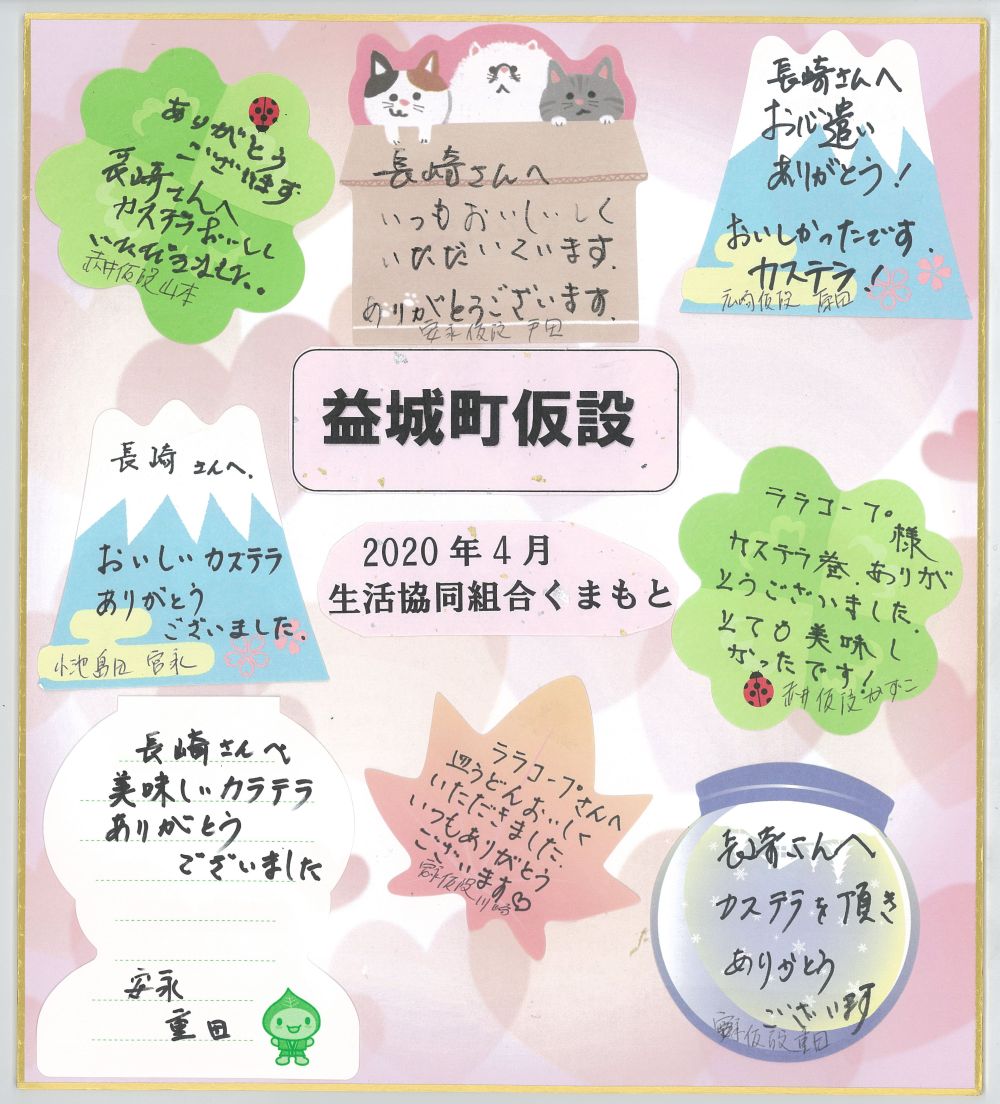 ありがとう
ございます
長崎さんへ
カステラおいしく
いただきました。
赤井仮設 山本
長崎さんへ
いつもおいしいしく
いただいています.
ありがとうございます.
安永仮設 戸田
長崎さんへ
お心遣い
ありがとう!
おいしかったです.
カステラ!
広崎仮設
益城町仮設
2020年4月
生活協同組合くまもと
長崎 さんへ.
おいしいカステラ
ありがとう
ございました.
小池島田 宮永
ララコープ様
カステラ巻.ありが
とうございました.
とても美味し
かったです!
赤井仮設 かずこ
長崎さんへ
美味しいカラテラ
ありがとう
でざいました
安永
重田
ララコープさんへ
皿うどんおいしく
いただきました.
いつもありがとう
ございます♡
安永仮設 川崎
長崎さんへ
カステラを頂き
ありがとう
ございます
安永仮設 重田